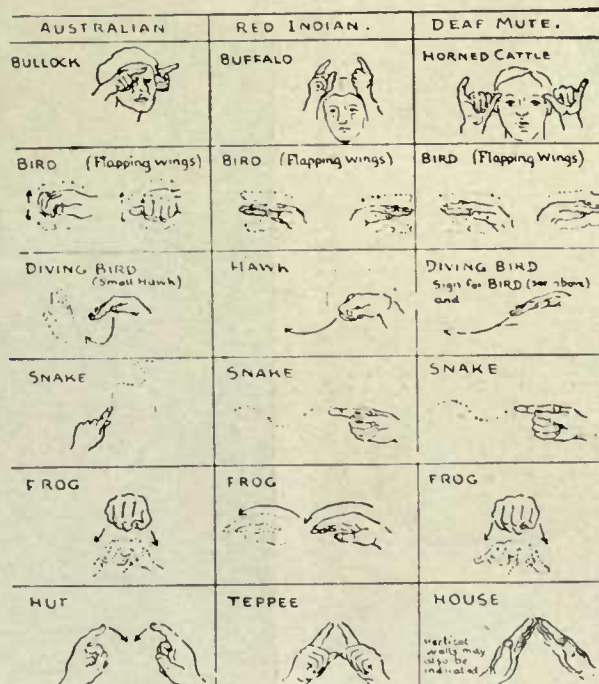 AUSTRALIAN
RED INDIAN.
DEAF MUTE.
BULLOCK
BUFFALO
HORNED CATTLE
BIRD (Flapping wings)
BIRD (Flapping wings)
BIRD (Flapping wings)
DIVING BIRD
(Small Hawk)
HAWK
DIVING BIRD
Sign for BIRD (see above)
and
SNAKE
SNAKE
SNAKE
FROG
FROG
FROG
HUT
TEPPEE
HOUSE
vertical
walls may
also be
indicated